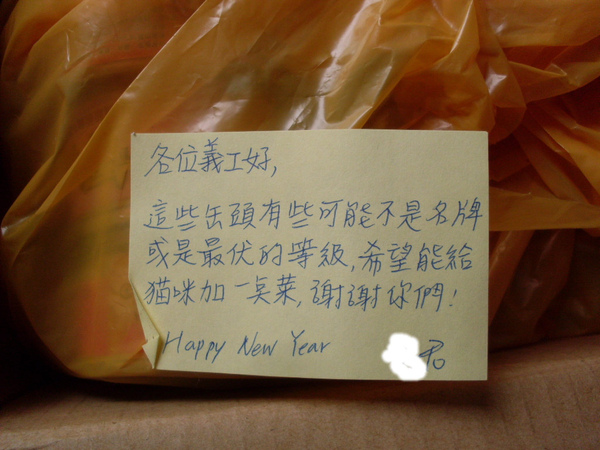 各位義工好,
這些缶頭有些可能不是名牌
或是最优的等級,希望能給
猫咪加一奌菜,謝謝你們!
Happy New Year 君